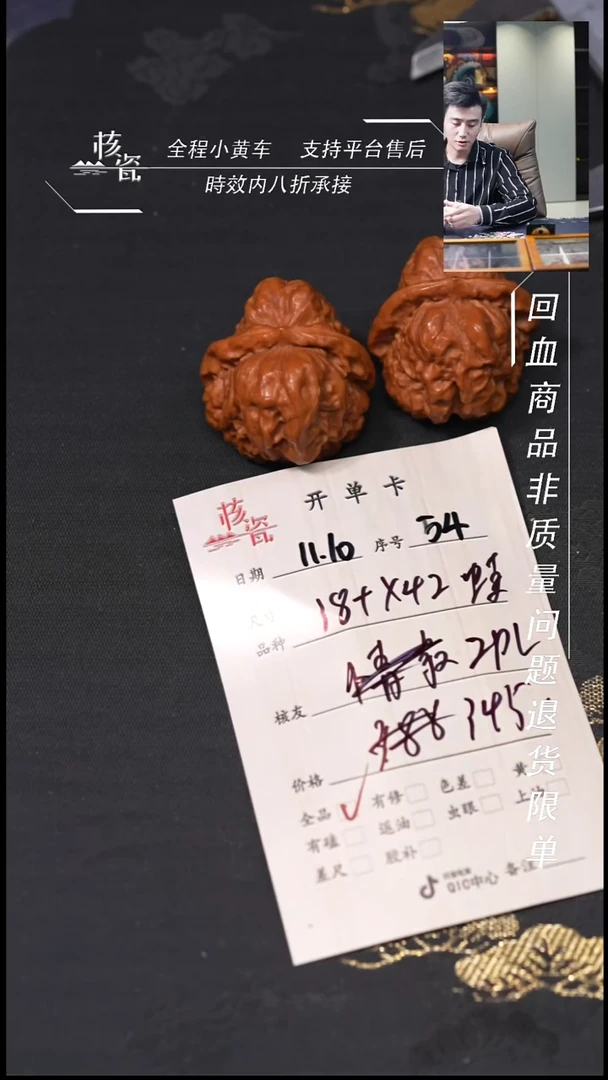 核瓷
全程小黄车 支持平台售后
時效内八折承接
回血商品非质量问题退货限单
核瓷
开单卡
日期 11.10 序号 54
尺寸 18+X42
品种
核友
价格 345
全品 ✓ 有修 色差 黄
有磕 返油 虫眼 上油
差尺 胶补
QIC中心 备注